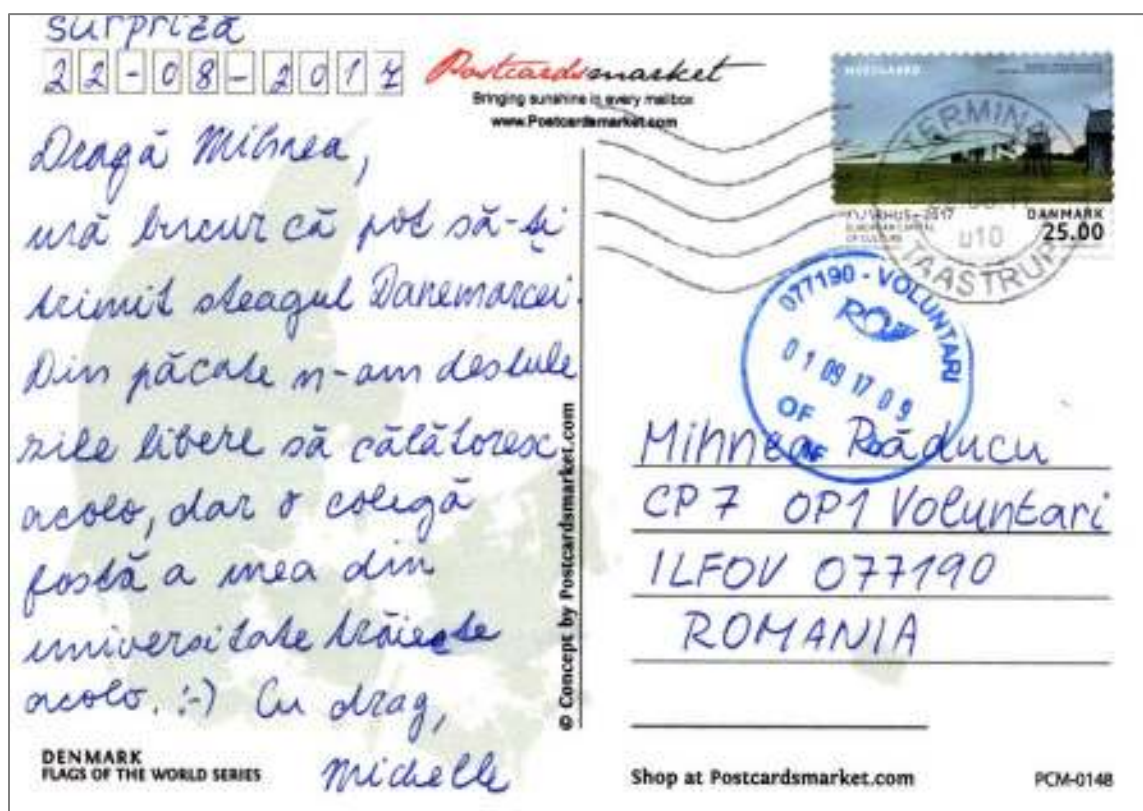 surpriză
22-08-2017
Postcardsmarket
Bringing sunshine in every mailbox
www.Postcardsmarket.com
Dragă Mihnea,
mă bucur că pot să-ți
trimit steagul Danemarcei.
Din păcate n-am destule
zile libere să călătoresc
acolo, dar o colegă
fostă a mea din
universitate trăiește
acolo. :-) Cu drag,
Michelle
DENMARK
FLAGS OF THE WORLD SERIES
© Concept by Postcardsmarket.com
MOESGAARD
AARHUS - 2017
EUROPEAN CAPITAL
OF CULTURE
DANMARK
25.00
TERMINAL
TAASTRUP
077190 - VOLUNTARI
01 09 17 09
OF
Mihnea Răducu
CP7 OP1 Voluntari
ILFOV 077190
ROMANIA
Shop at Postcardsmarket.com
PCM-0148